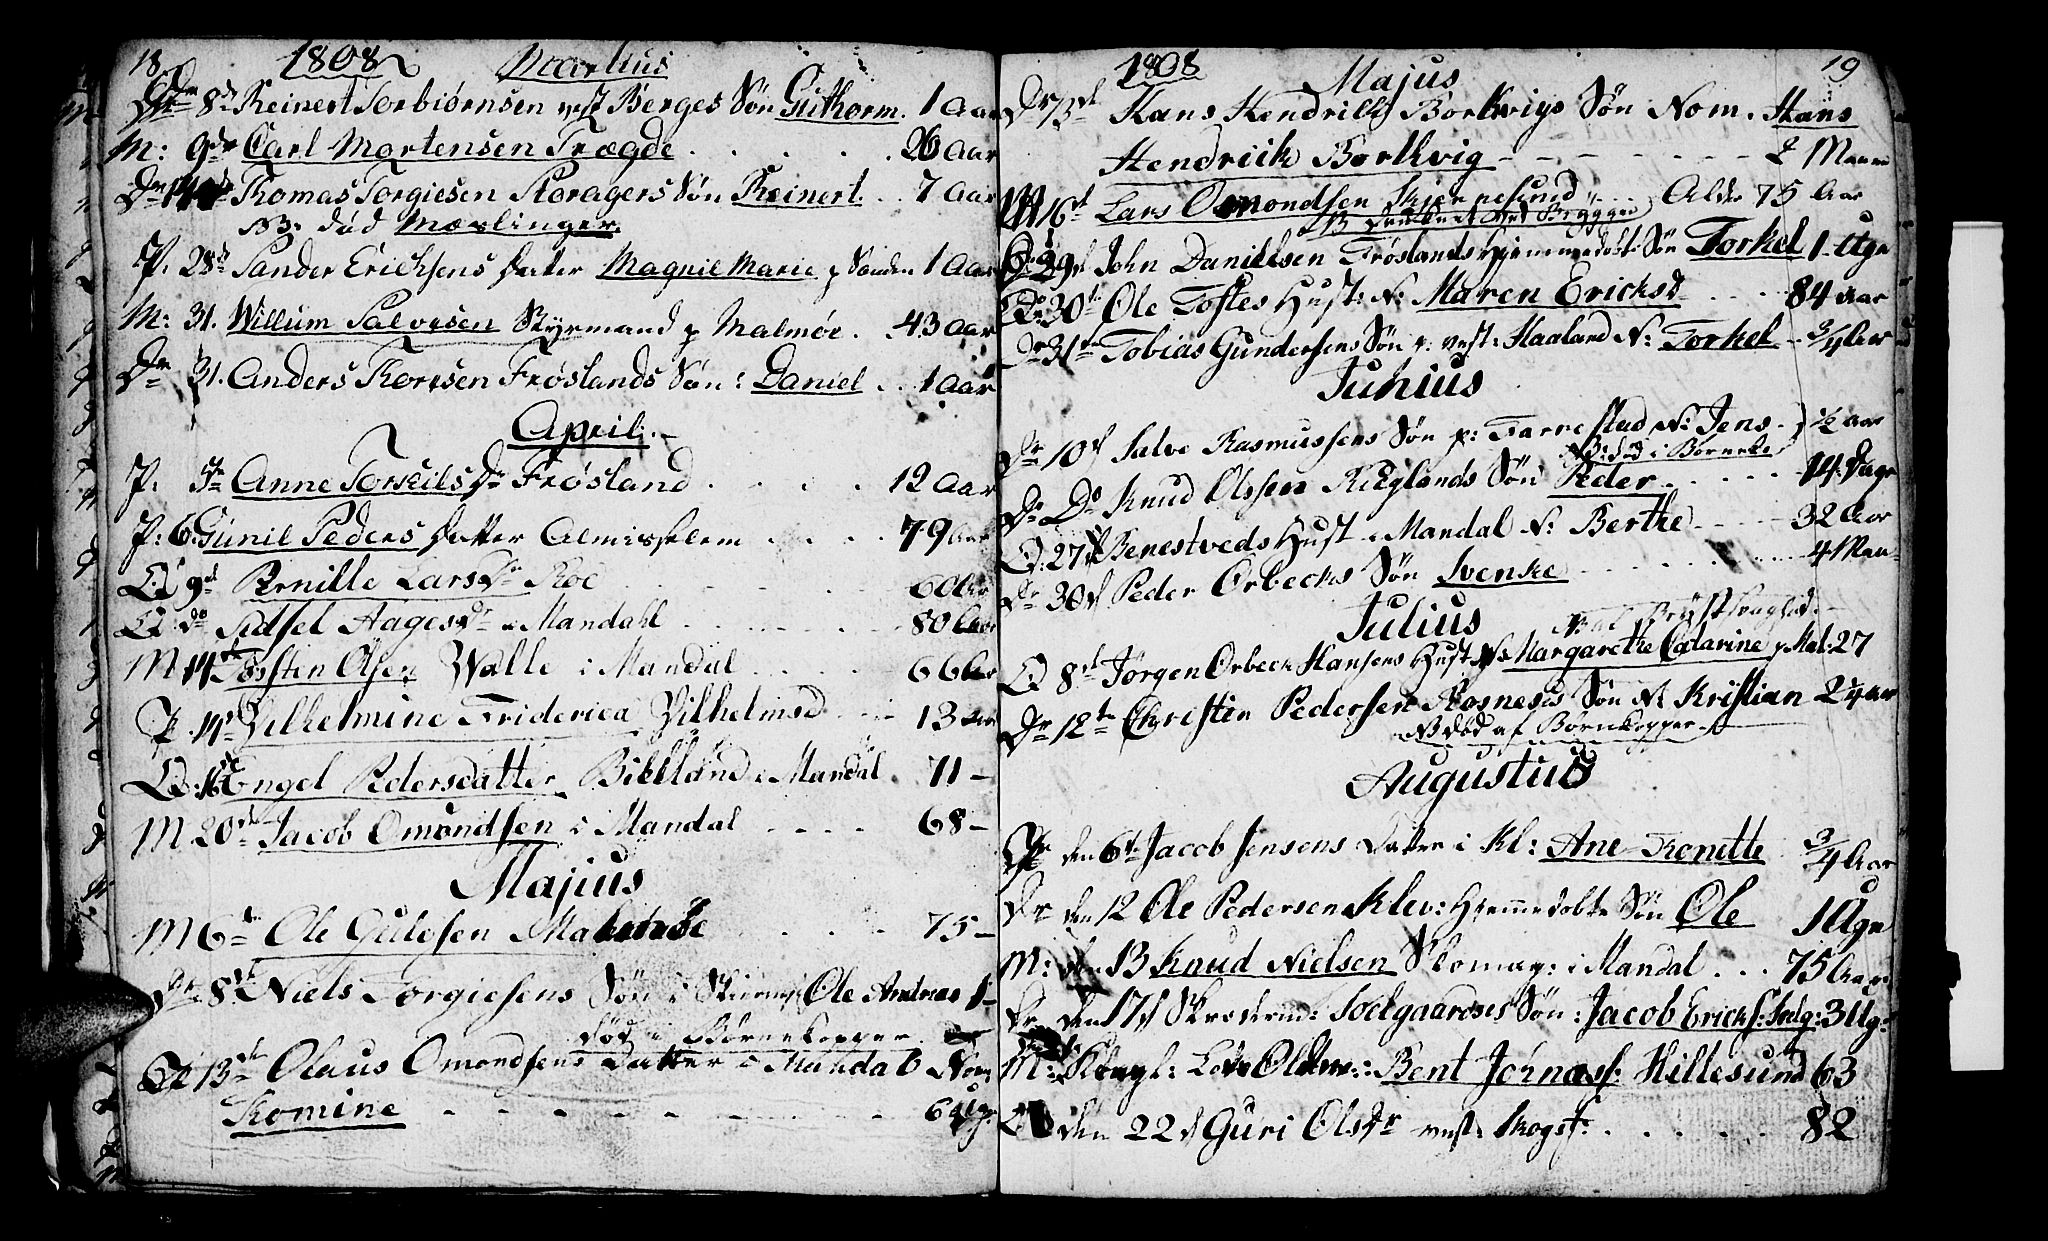 18. 1808 Martius
Dr 8d Reinert Torbiørnsen vest Berges Søn Guthorm. 1 Aar
M: 9de Carl Mortensen Trægde . . . . . 26 Aar
Thomas Torgiesen Storagers Søn Reinert . . 7 Aar
NB. død Mæslinger.
P. 28d Sander Ericksens datter Magnil Marie p Sanden 1 Aar
M: 31. Willum Salvesen Styrmand p Malmøe . 43 Aar
Dr 31. Anders Torresen Frøslands Søn: Daniel . . 1 Aar
April.
P. 5te Anne Torkeils Dr Frøsland . . . . 12 Aar
P: 6 Gunil Peders datter Almisselem . . . . 79 Aar
Q 9d Pernille Lars Dr Roe 60 Aar
Q: do Sidsel Aages Dr i Mandahl 80 Aar
M 14 Torsten Olsen Walle i Mandal . . . . 66 Aar
P. 14d Willelmine Friderica Wilhelmsd 13 Aar
Q: 16d Engel Pedersdatter Birkeland i Mandal. 71 -
M 20d Jacob Omundsen i Mandal . . . . 68 -
Majus
M 6te Ole Gulofsen Malmøe . . . . 75 -
Dr 8d Niels Torgiesens Søn i Ole Andreas 1 -
død i Børnekopper
13de Olaus Omondsens Datter i Mandal Nom
Tomine 6 Ug.
1808 Majus 19
Dr 13d Hans Hendrill Borkvigs Søn Nom. Hans
Hendrick Borkvig 2 Maan
M 16d Lars Omondsen Skjernesund . . . Alder 75 Aar
NB ved Brygge
29d John Daniellsen Frøslands Hjemmedøbt Søn Torkel 1 Uge
Q: 30te Ole Tostes Hust: N: Maren Ericksd . . . 84 Aar
Dr 31te Tobias Gundersens Søn p: vest: Haaland N: Torkel 3/4 Aar
Junius
Dr 10d Salve Rasmussens Søn p: Farrestad N: Jens . 1/2 Aar
NB: død i Børnek
Dr Do Knud Olssen Rieglands Søn Peder . . . . . 14 Dage
Q: 27d Benestveds Hust i Mandal N: Berthe 32 Aar
Dr 30d Peder Orbecks Søn Svenke 4 Maa
Julius
NB: af Brystsvaghed
Q 8d Jørgen Orbeck Hansens Hust N: Margarethe Catarine p Mal: 27
Dr 12te Christen Pedersen Rosnes Søn N: Kristian 2 1/4 Aar
NB død af Børnekopper
Augustus
P den 6te Jacob Jensens Datter i Kl: Ane Tonette 3/4 Aar
Dr den 12 Ole Pedersen Klev: Hjemmedøbte Søn Ole 1 Uge
M: den 13 Knud Nielsen Skomag: i Mandal . . . 75 Aar
Dr den 17d Skrederm: Soelgaardses Søn: Jacob Ericks: Solg: 3 Ug:
M: Kongl: Lods Olderm: Bent Jornas: Hillesund 63
Q den 22d Guri Olsdr vest: Skogsf: . . . . . . 82